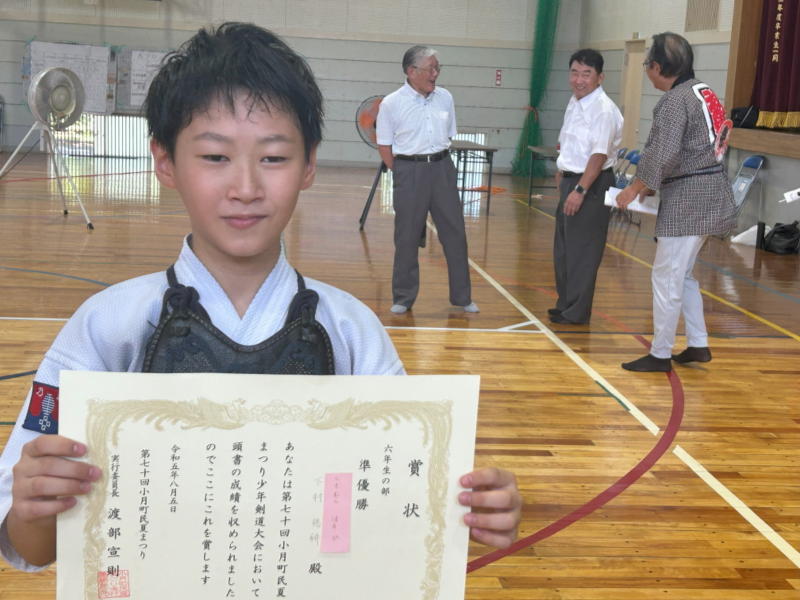 賞状
六年生の部
準優勝
下村
殿
あなたは第七十回小月町民夏
まつり少年剣道大会において
頭書の成績を収められました
のでここにこれを賞します
令和五年八月五日
第七十回小月町民夏まつり
実行委員長 渡部宣則
年度卒業生一同